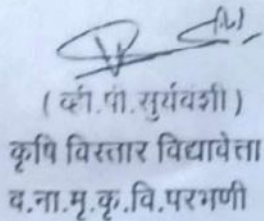 ( व्ही.पी.सुर्यवंशी )
कृषि विस्तार विद्यावेत्ता
व.ना.मृ.कृ.वि.परभणी